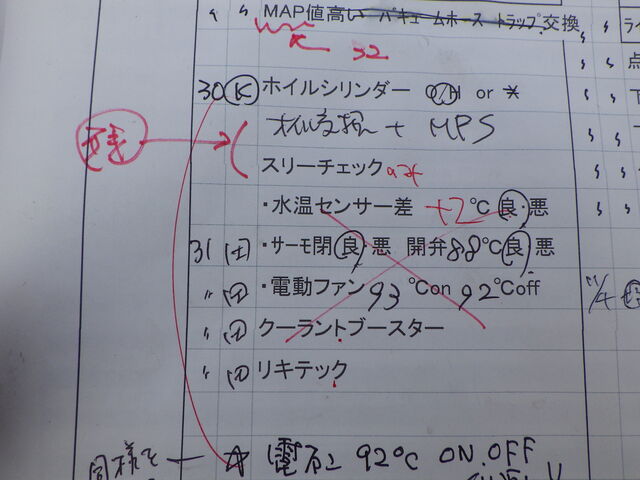 〃 〃 MAP値高い バキュームホース トラップ 交換
30 Ⓚ ホイルシリンダー O/H or
オイル交換 + MPS
残
スリーチェック
・水温センサー差 +2℃ 良・悪
31 土 ・サーモ閉 良・悪 開弁88℃ 良・悪
〃 ・電動ファン 93℃on 92℃off
〃 クーラントブースター
〃 リキテック
同様を ☆ 92℃ ON.OFF